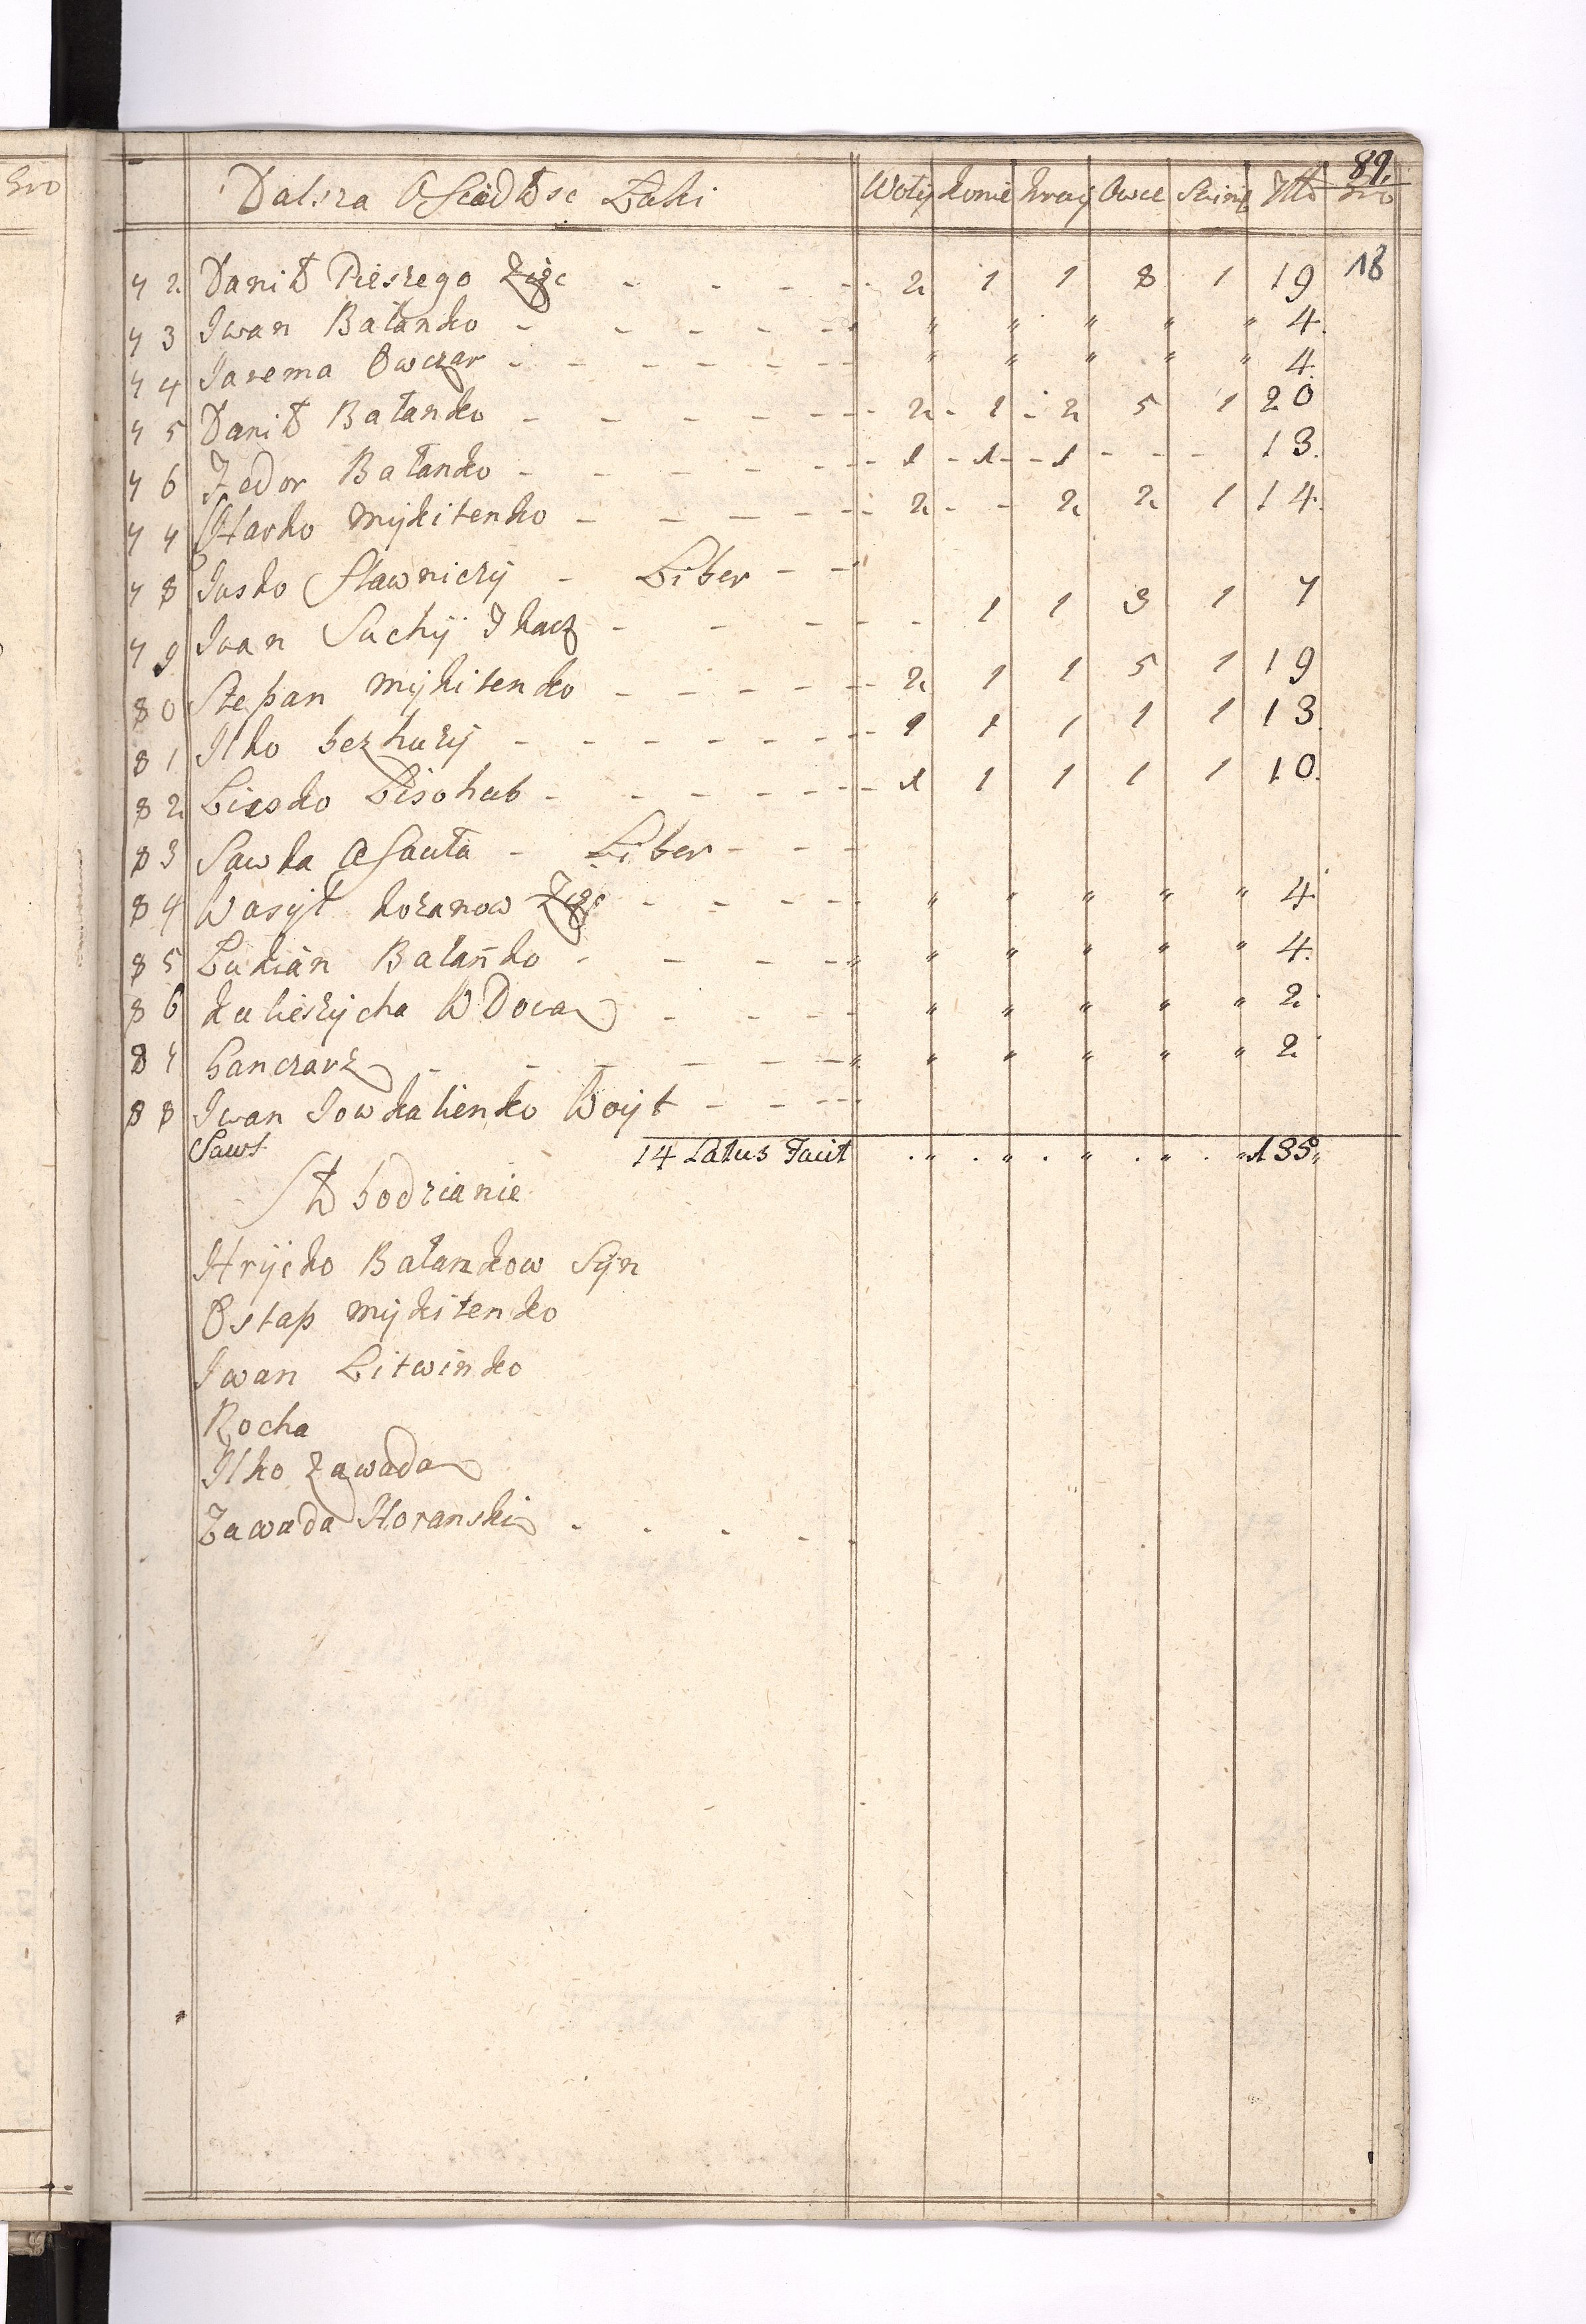 89.
Dalsza Osiadłosc Łuki Woły Konie Krowy Owce Swinie Złł Gro
72 Danił Pieszego Zięc - - - - 2 1 1 8 1 19 18
73 Iwan Bałanko - - - - - " " " " " 4.
74 Jarema Owczar - - - - - - " " " " " 4.
75 Danił Bałanko - - - - - - 2 - 1 - 2 5 1 20
76 Fedor Bałanko - - - - - - 1 - 1 - 1 - - - 13.
77 Harko Mykitenko - - - - - 2 - - 2 2 1 14.
78 Jusko Stawniczy - Liber - -
79 Iwan Suchÿ Tkacz - - - - - 1 1 3 1 7
80 Stepan Mykitenko - - - - - 2 1 1 5 1 19
81 Ilko bezhuzy - - - - - - - 1 1 1 1 1 13.
82 Lisohub - - - - - - 1 1 1 1 1 10.
83 Sawka Asauła - Liber - - -
84 Wasył Kozanow Zięc - - - - " " " " " 4.
85 Łukian Bałańko - - - - " " " " " " 4.
86 Kulieszycha Wdowa - - - - " " " " " 2.
87 hanczarz - - - - - " " " " " " 2.
88 Iwan Jowkalienko Woyt - - - -
14 Latus Facit . " . " . " . " . " 135 "
Słobodzianie
Hryćko Bałankow Syn
Ostap Mykitenko
Iwan Litwinko
Rocha
Ilko Zawada
Zawada Horanski - - - -